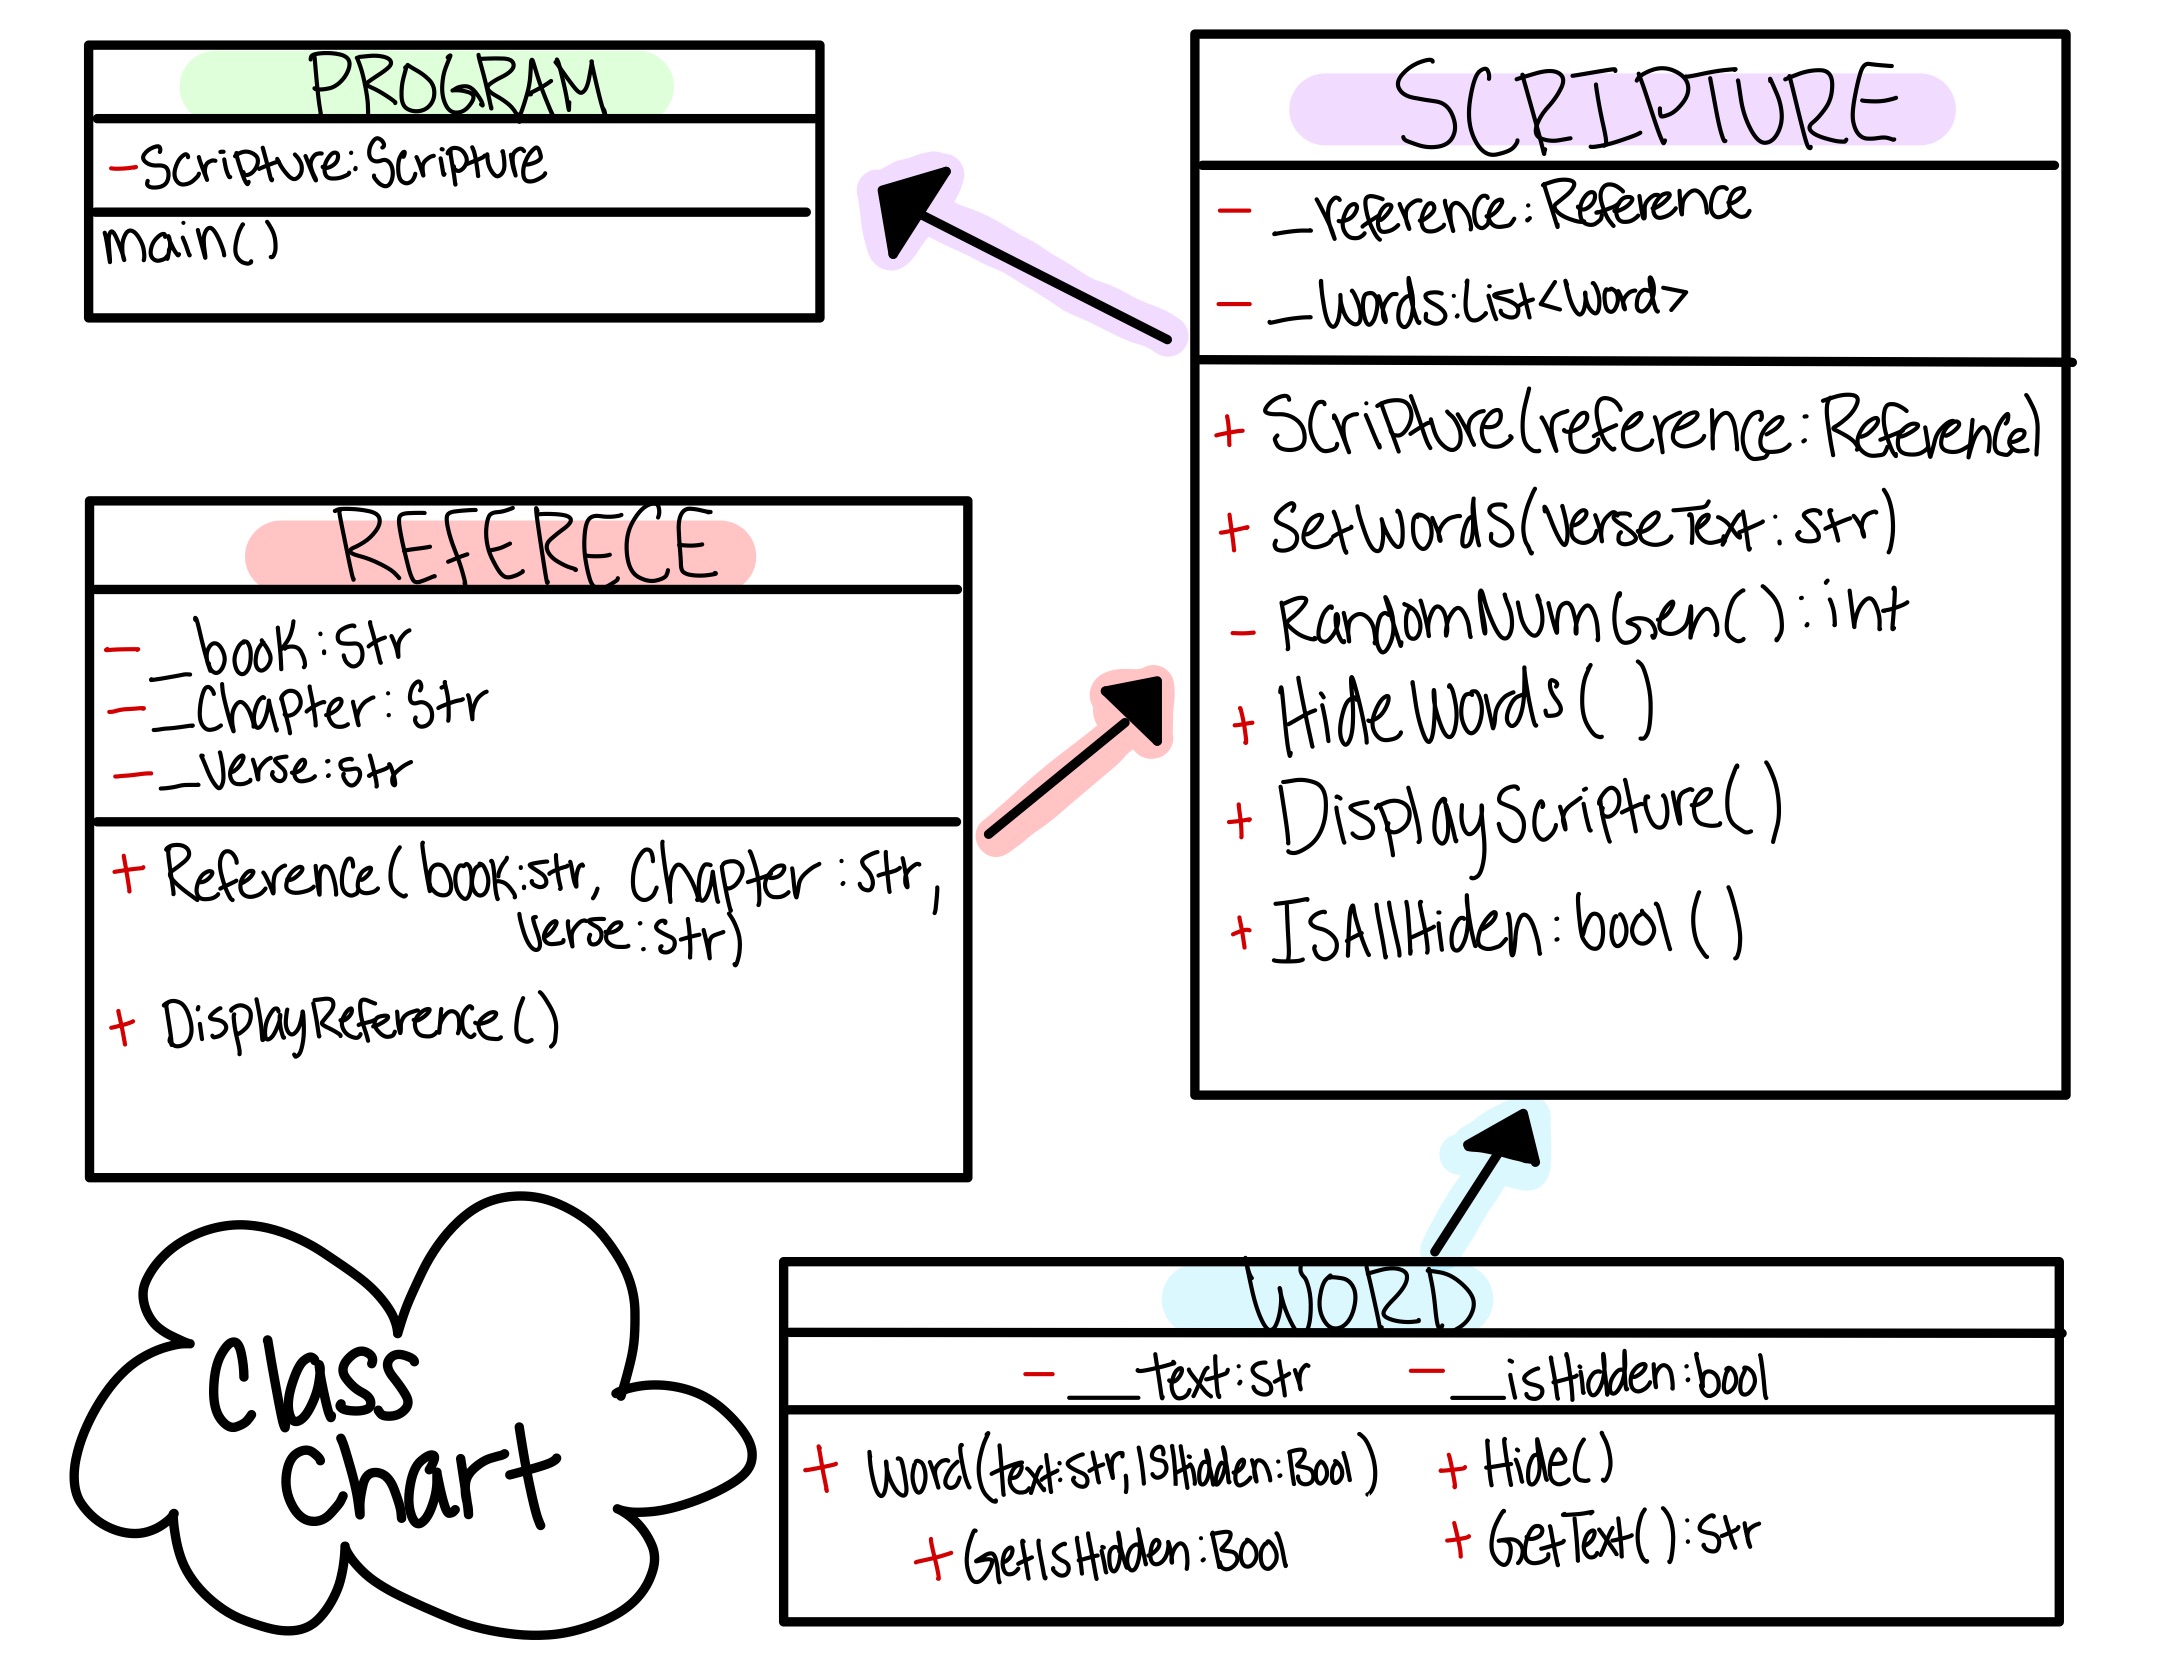 PROGRAM
- Scripture: Scripture
main()
SCRIPTURE
- _reference: Reference
- _words: List<Word>
+ Scripture(reference: Reference)
+ SetWords(verseText: str)
- RandomNumGen(): int
+ HideWords()
+ DisplayScripture()
+ IsAllHiden: bool()
REFERECE
- _book: str
- _Chapter: Str
- _verse: str
+ Reference(book: str, Chapter: str,
Verse: str)
+ DisplayReference()
Class
Chart
WORD
- __text: str - __isHidden: bool
+ Word(text: str, IsHidden: Bool) + Hide()
+ GetIsHidden: Bool + GetText(): str